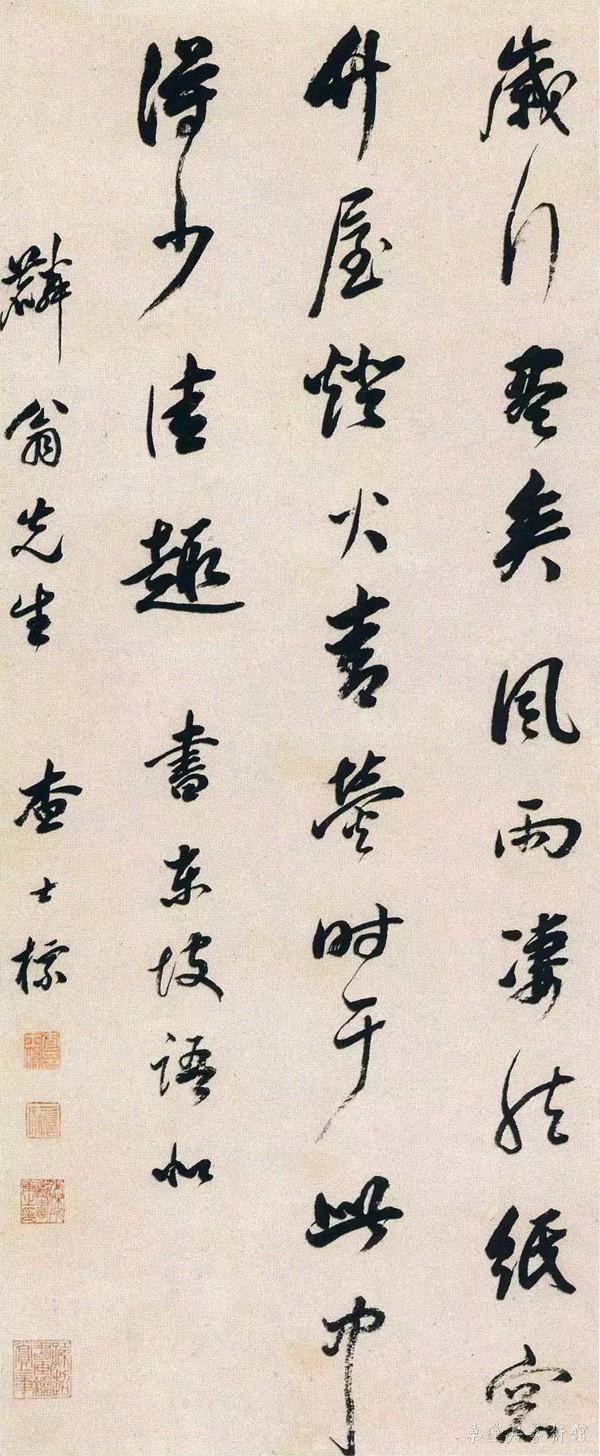 歲行盡矣風雨凄然紙窓
竹屋燈火青熒時于此中
得少佳趣 書東坡語似
麟翁先生 查士標